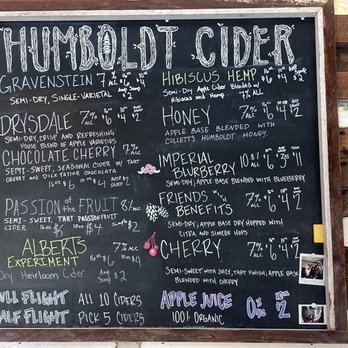 HUMBOLDT CIDER
GRAVENSTEIN 7% ALC
SEMI-DRY, SINGLE-VARIETAL
DRYSDALE 7% ALC
SEMI-DRY, CRISP AND REFRESHING
HOUSE BLEND OF APPLE VARIETIES
CHOCOLATE CHERRY 7% ALC
SEMI-SWEET, SEASONAL CIDER W/ TART
CHERRY AND DICK TAYLOR CHOCOLATE
PASSION OF THE FRUIT 8% ALC
SEMI-SWEET, TART PASSIONFRUIT
CIDER
ALBERTS 7% ALC
EXPERIMENT
Dry Heirloom Cider
FULL FLIGHT ALL 10 CIDERS
HALF FLIGHT PICK 5 CIDERS
HIBISCUS HEMP
Semi-Dry Apple Cider Blended w/
Hibiscus and Hemp
7% ALC
HONEY 7% ALC
APPLE BASE BLENDED WITH
COLLETTS HUMBOLDT HONEY.
IMPERIAL
BLURBERRY 10.8%
SEMI-DRY, APPLE BASE BLENDED WITH BLUEBERRY
FRIENDS W/ 7% ALC
BENEFITS
SEMI-DRY, APPLE BASE DRY HOPPED WITH
CITRA AND SIMCOE HOPS
CHERRY 7% ALC
SEMI-SWEET WITH JUICY, TART FINISH, APPLE BASE
BLENDED WITH CHERRY
APPLE JUICE 0%
100% ORGANIC